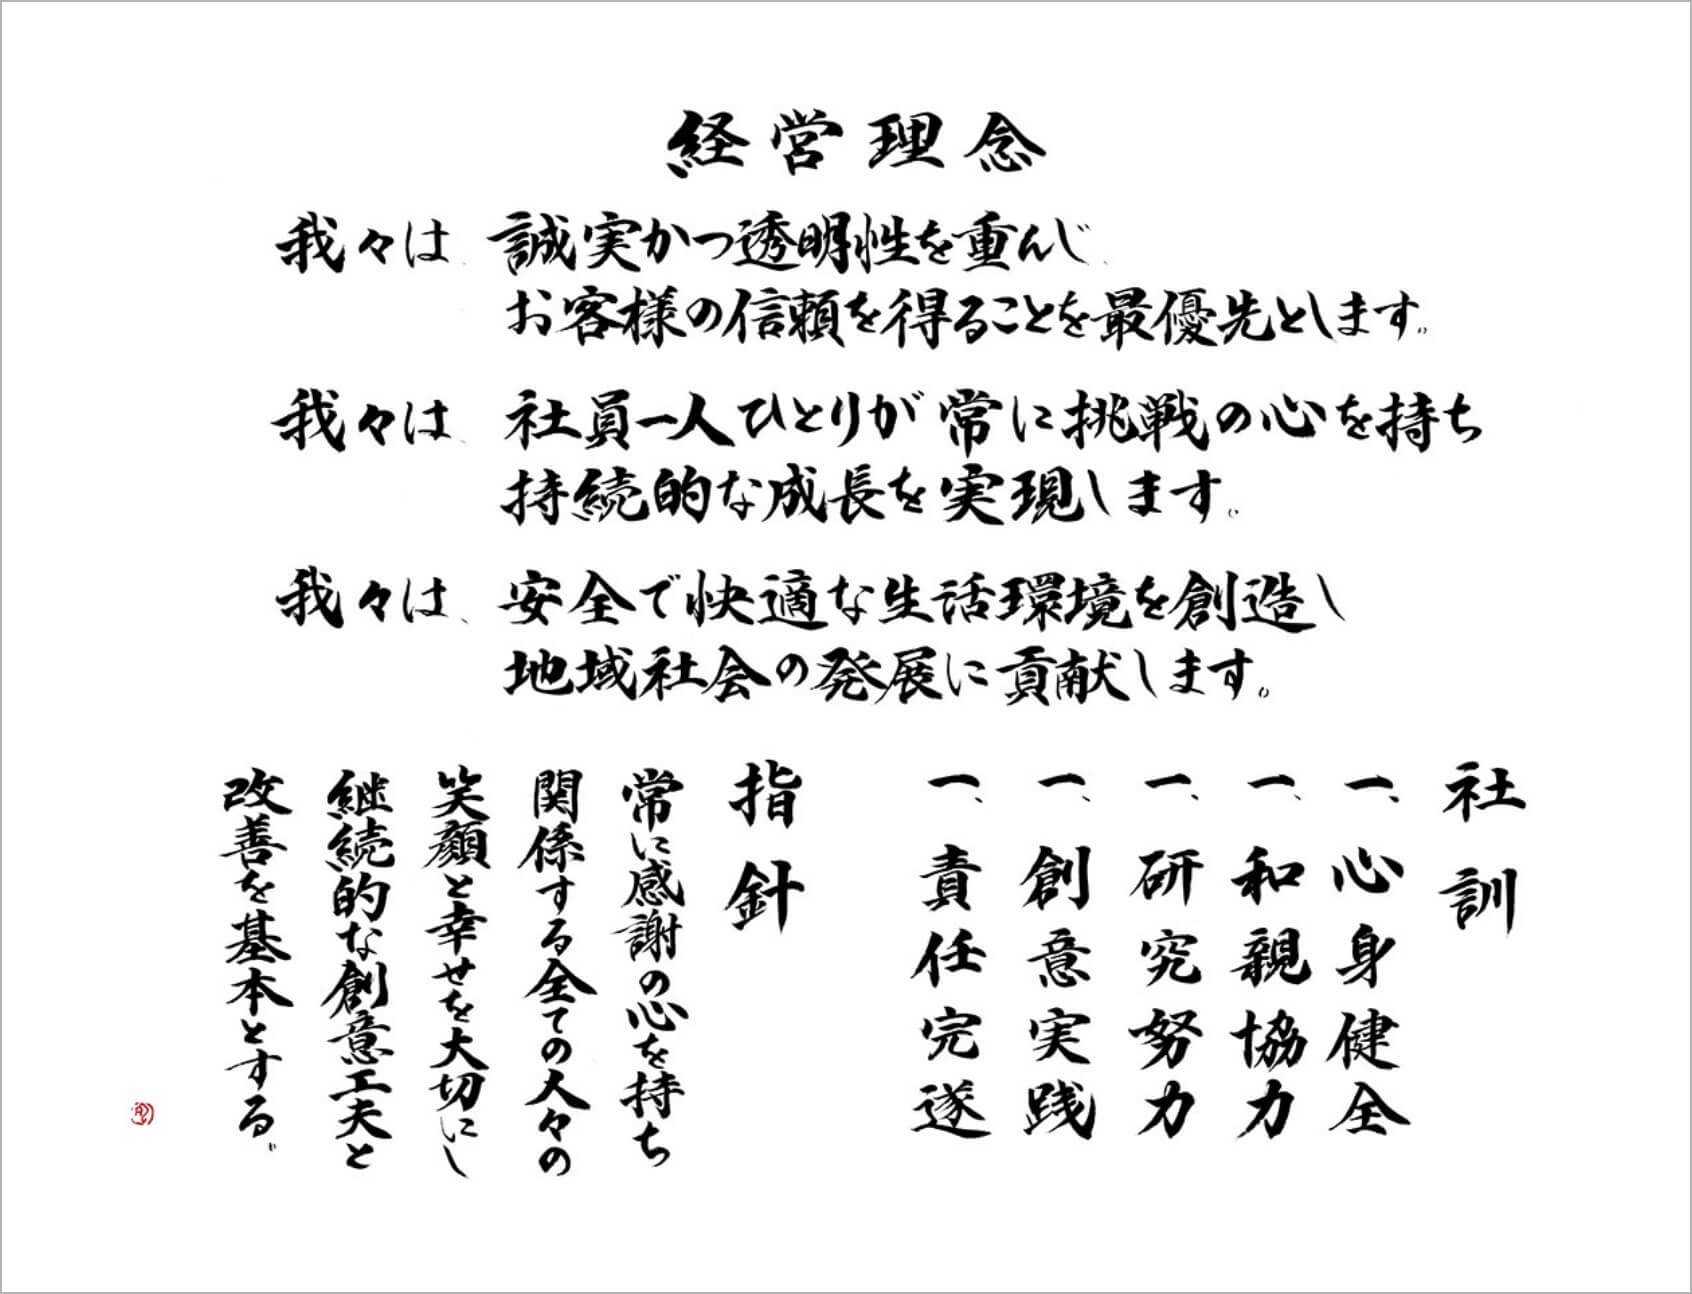 経営理念
我々は、誠実かつ透明性を重んじ、
お客様の信頼を得ることを最優先とします。
我々は、社員一人ひとりが常に挑戦の心を持ち
持続的な成長を実現します。
我々は、安全で快適な生活環境を創造し
地域社会の発展に貢献します。
社訓
一、心身健全
一、和親協力
一、研究努力
一、創意実践
一、責任完遂
指針
常に感謝の心を持ち
関係する全ての人々の
笑顔と幸せを大切にし
継続的な創意工夫と
改善を基本とする。